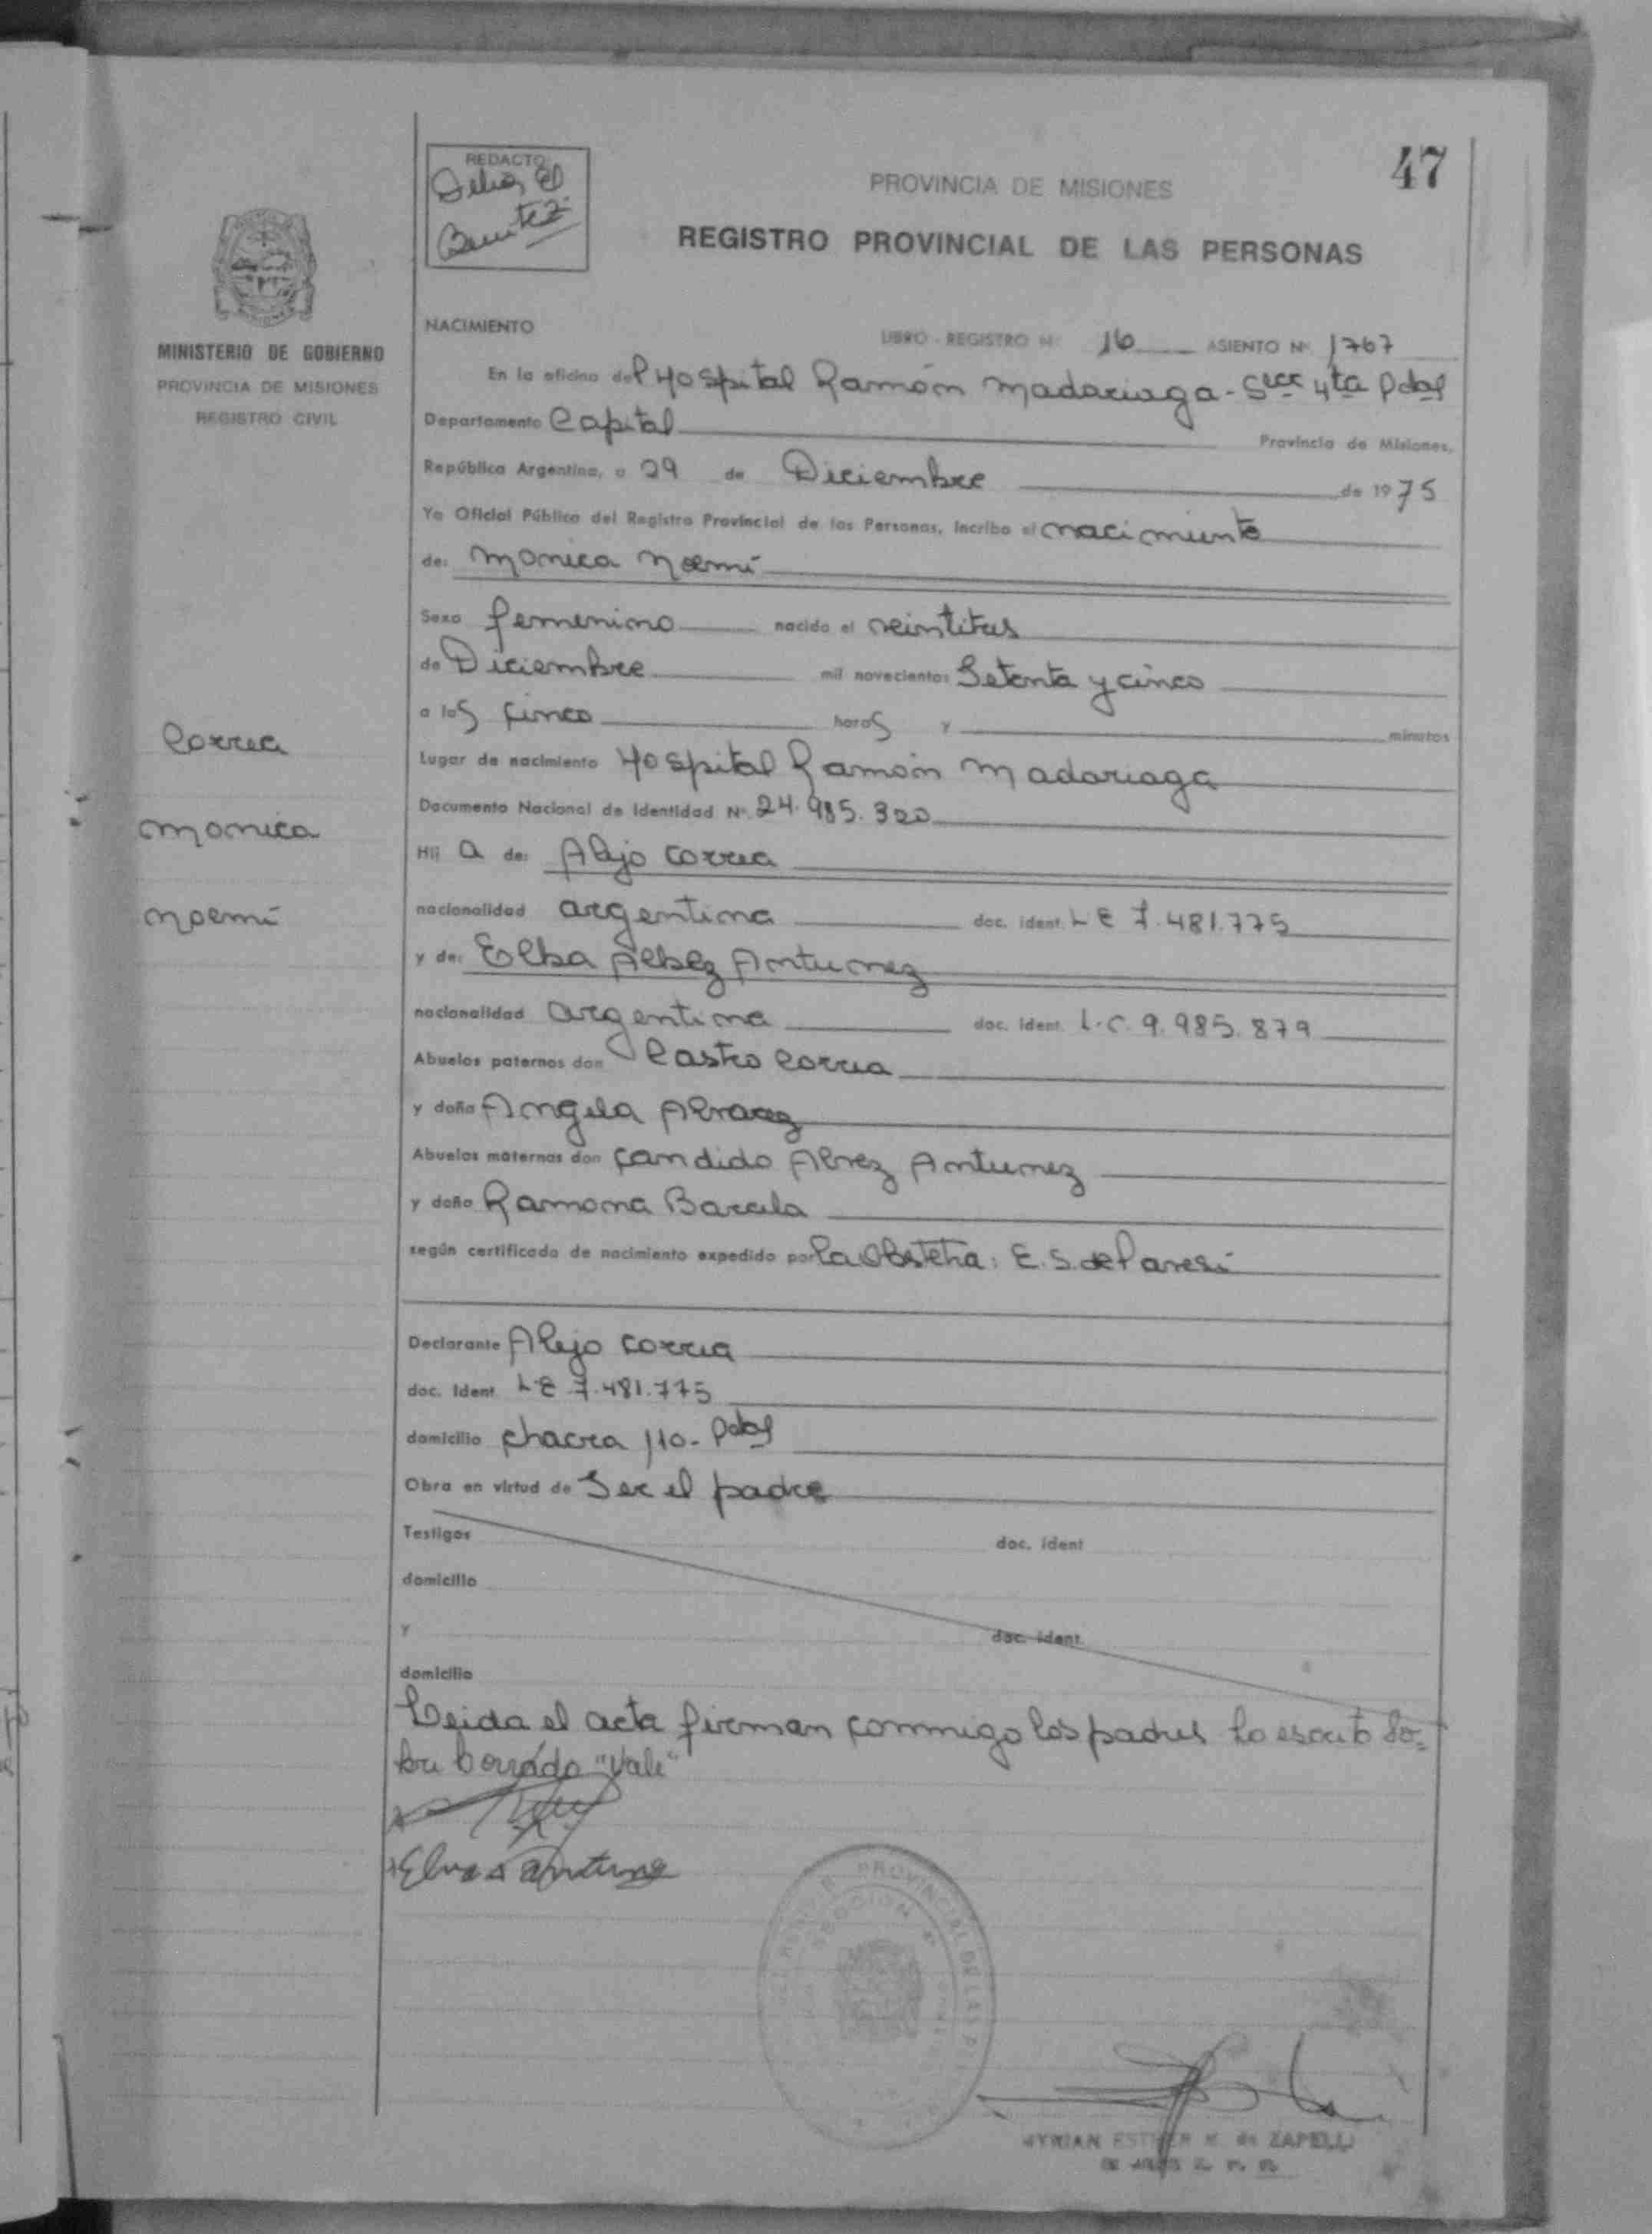 47
REDACTO
Benitez
PROVINCIA DE MISIONES
REGISTRO PROVINCIAL DE LAS PERSONAS
MINISTERIO DE GOBIERNO
PROVINCIA DE MISIONES
REGISTRO CIVIL
NACIMIENTO
LIBRO - REGISTRO Nº 16 ASIENTO Nº 1767
En la oficina del Hospital Ramón Madariaga - Secc 4ta Pdas
Departamento Capital Provincia de Misiones,
República Argentina, a 29 de Diciembre de 1975
Yo Oficial Público del Registro Provincial de las Personas, incribo el nacimiento
de: Monica Noemí
Sexo femenino nacido el veintitres
de Diciembre mil novecientos Setenta y cinco
a las cinco horas y minutos
Lugar de nacimiento Hospital Ramón Madariaga
Documento Nacional de Identidad Nº 24.985.320
Hij a de: Alejo Correa
nacionalidad argentina doc. ident. L E 7.481.775
y de: Elba Albez Antunez
nacionalidad argentina doc. ident. L.C. 9.985.879
Abuelos paternos don Castro Correa
y doña Angela Alvarez
Abuelos maternos don Candido Alvez Antunez
y doña Ramona Barcela
según certificado de nacimiento expedido por la Obstetra: E. S. de Paresi
Declarante Alejo Correa
doc. Ident. L E 7.481.775
domicilio chacra 110 - Pdas
Obra en virtud de Ser el padre
Testigos doc. ident
domicilio
y doc. ident.
domicilio
Leida el acta firman conmigo los padres lo escrito so-
bre borrado "Vale"
Correa
Monica
Noemí
PROVINCIAL DE LAS
SECCION 4ª
MYRIAN ESTHER M. de ZAPELLI